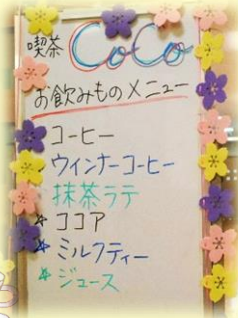 喫茶 CoCo
お飲みものメニュー
コーヒー
ウィンナーコーヒー
抹茶ラテ
☆ ココア
☆ ミルクティー
☆ ジュース